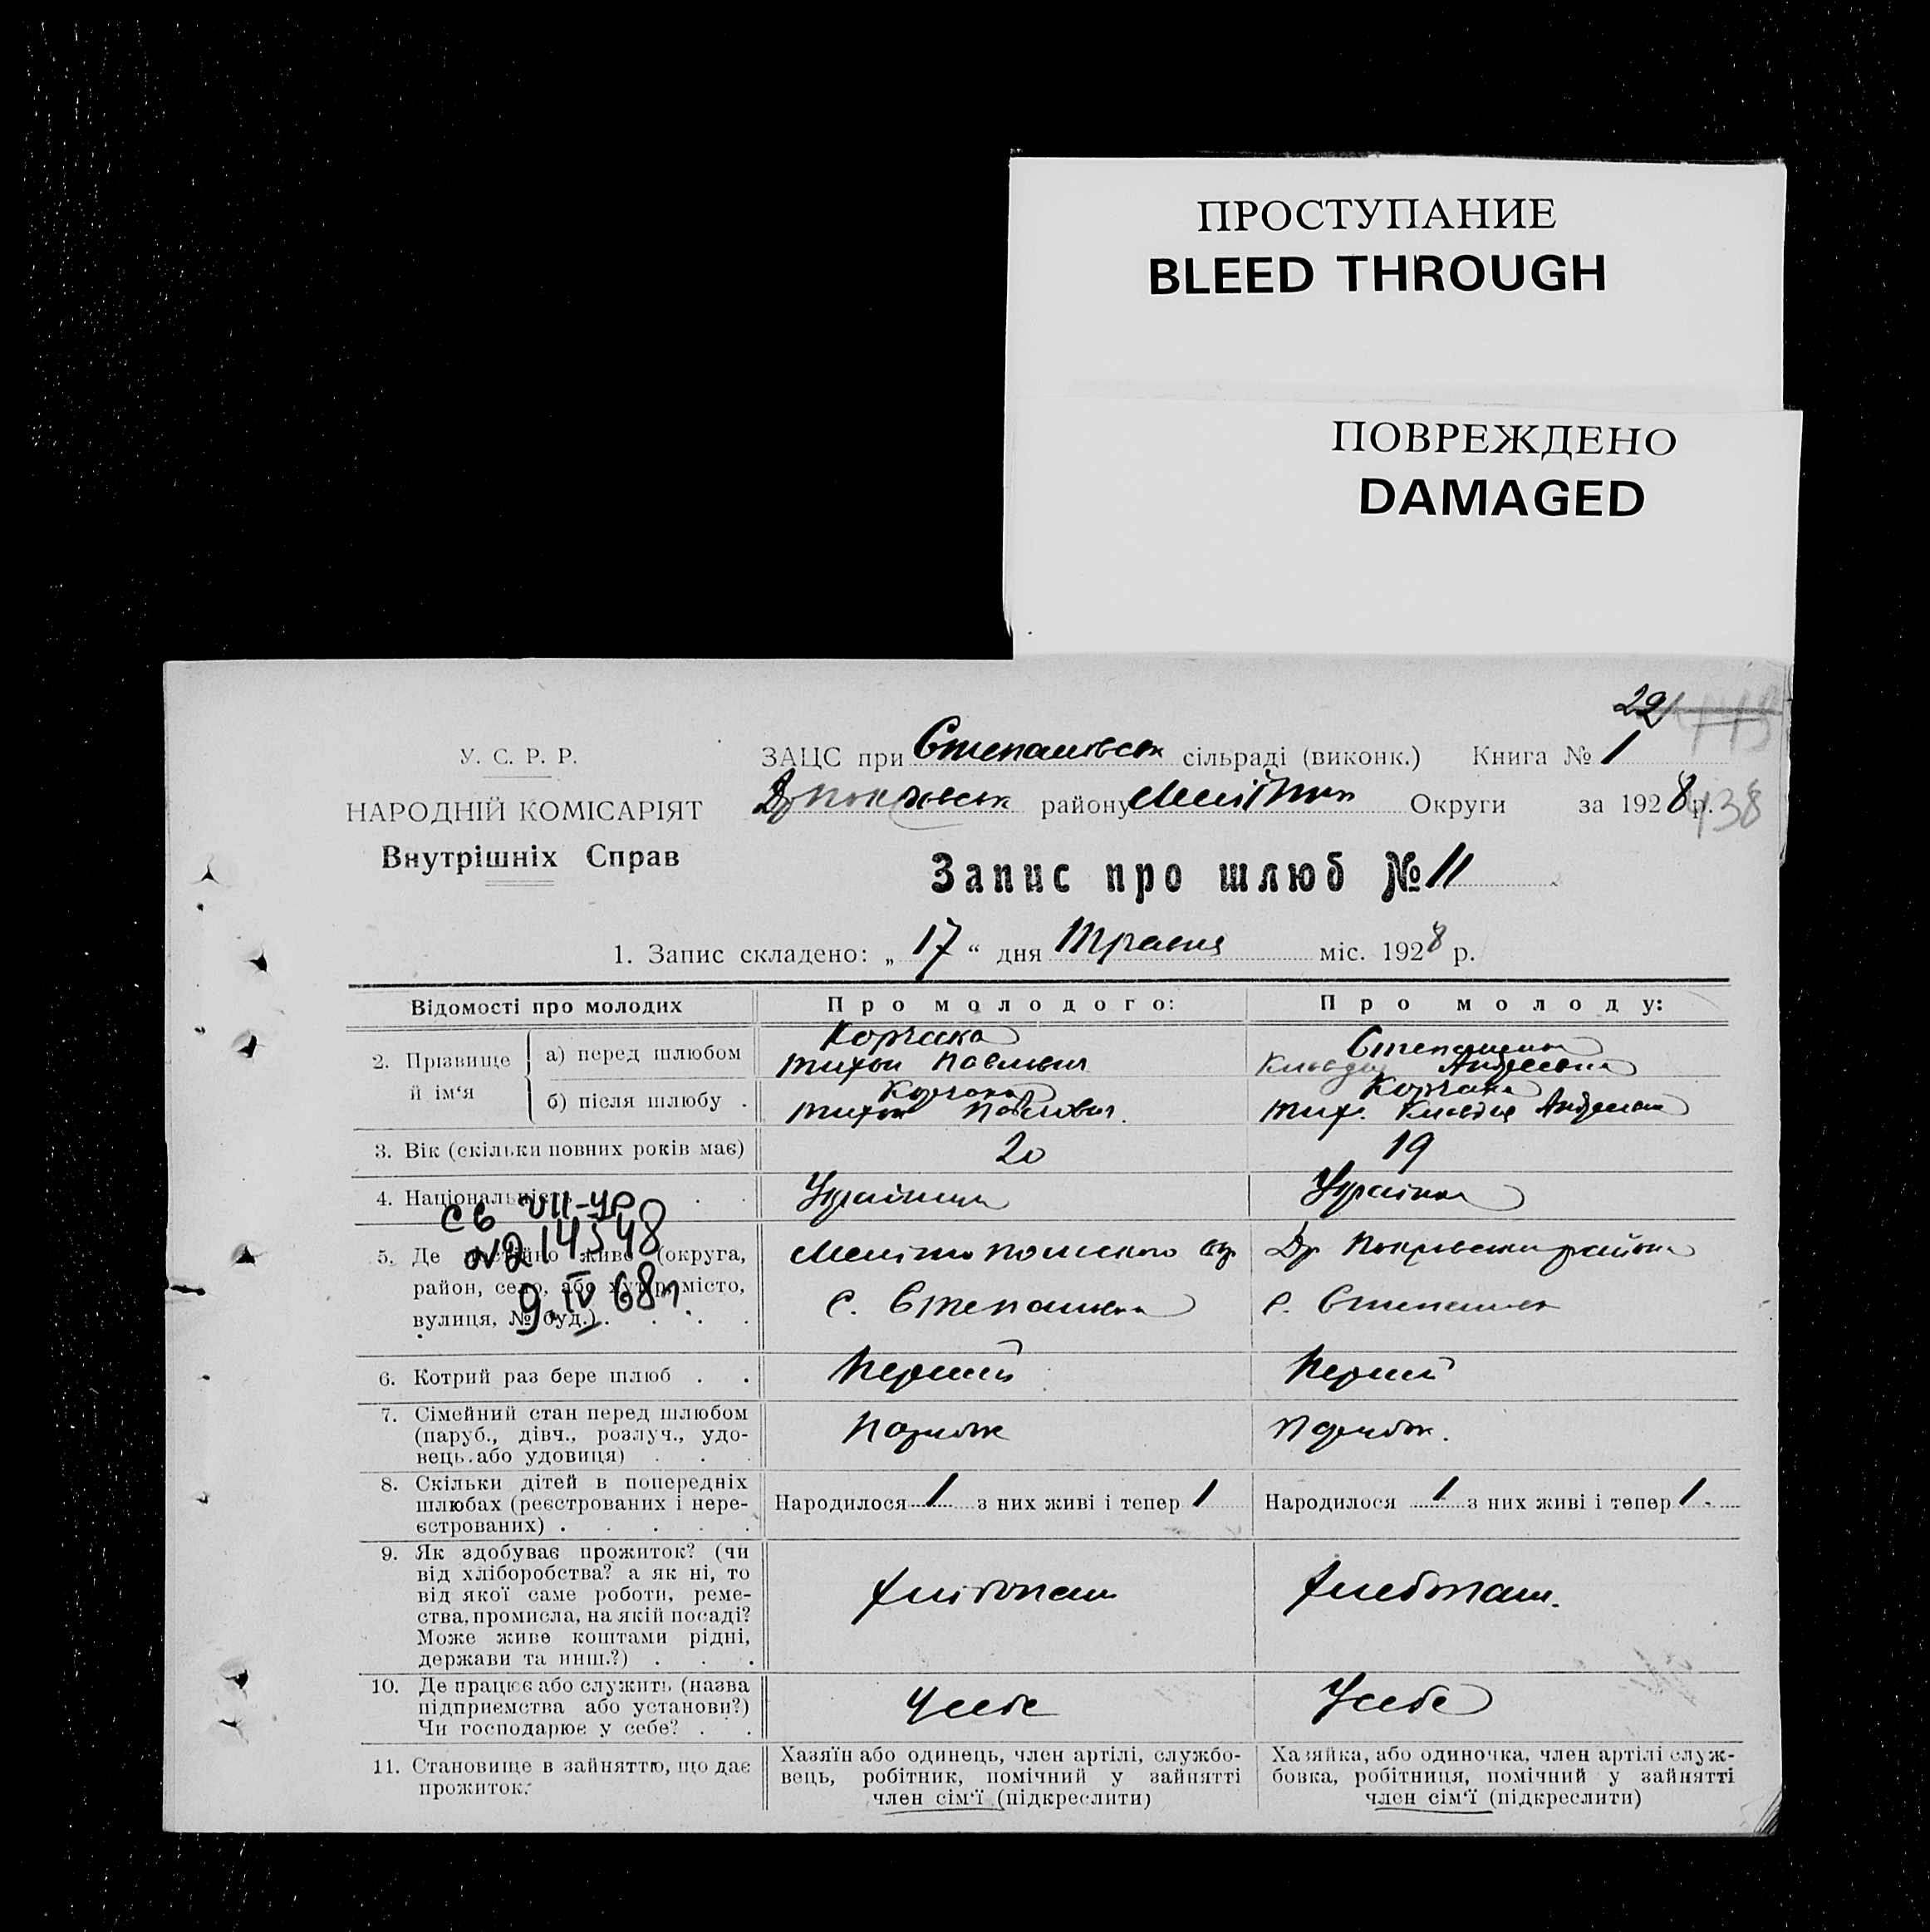 ПРОСТУПАНИЕ
BLEED THROUGH
ПОВРЕЖДЕНО
DAMAGED
22
У. С. Р. Р.
ЗАЦС при сільраді (виконк.) Книга № 1
НАРОДНІЙ КОМІСАРІЯТ
району Округи за 1928 р.
138
Внутрішніх Справ
Запис про шлюб № 11
1. Запис складено: „ 17 “ дня Травня міс. 1928 р.
Відомості про молодих
Про молодого:
Про молоду:
2. Прізвище й ім‘я
а) перед шлюбом
Корчака
Тихон Павлович
Андреевна
б) після шлюбу .
Корчака
Тихон Павлович.
Корчака
3. Вік (скільки повних років має)
20
19
4. Національність . .
Українец
Українка
св VII-УР
№214548
9. IV 68г.
5. Де постійно живе (округа,
район, село, або хутір, місто,
вулиця, № буд.) . . . .
Мелітопольського окр
с. Степановка
Др Покровськи района
с.
6. Котрий раз бере шлюб . .
Перший
Перший
7. Сімейний стан перед шлюбом
(паруб., дівч., розлуч., удо-
вець. або удовиця) . . .
8. Скільки дітей в попередніх
шлюбах (реєстрованих і нере-
єстрованих) . . . . .
Народилося 1 з них живі і тепер 1
Народилося 1 з них живі і тепер 1.
9. Як здобуває прожиток? (чи
від хліборобства? а як ні, то
від якої саме роботи, реме-
ства, промисла, на якій посаді?
Може живе коштами рідні,
держави та инш.?) . . .
10. Де працює або служить (назва
підприємства або установи?)
Чи господарює у себе? . .
Усебе
Усебе
11. Становище в зайняттю, що дає
прожиток:
Хазяїн або одинець, член артілі, службо-
вець, робітник, помічний у зайнятті
член сім‘ї (підкреслити)
Хазяйка, або одиночка, член артілі служ-
бовка, робітниця, помічний у зайнятті
член сім‘ї (підкреслити)